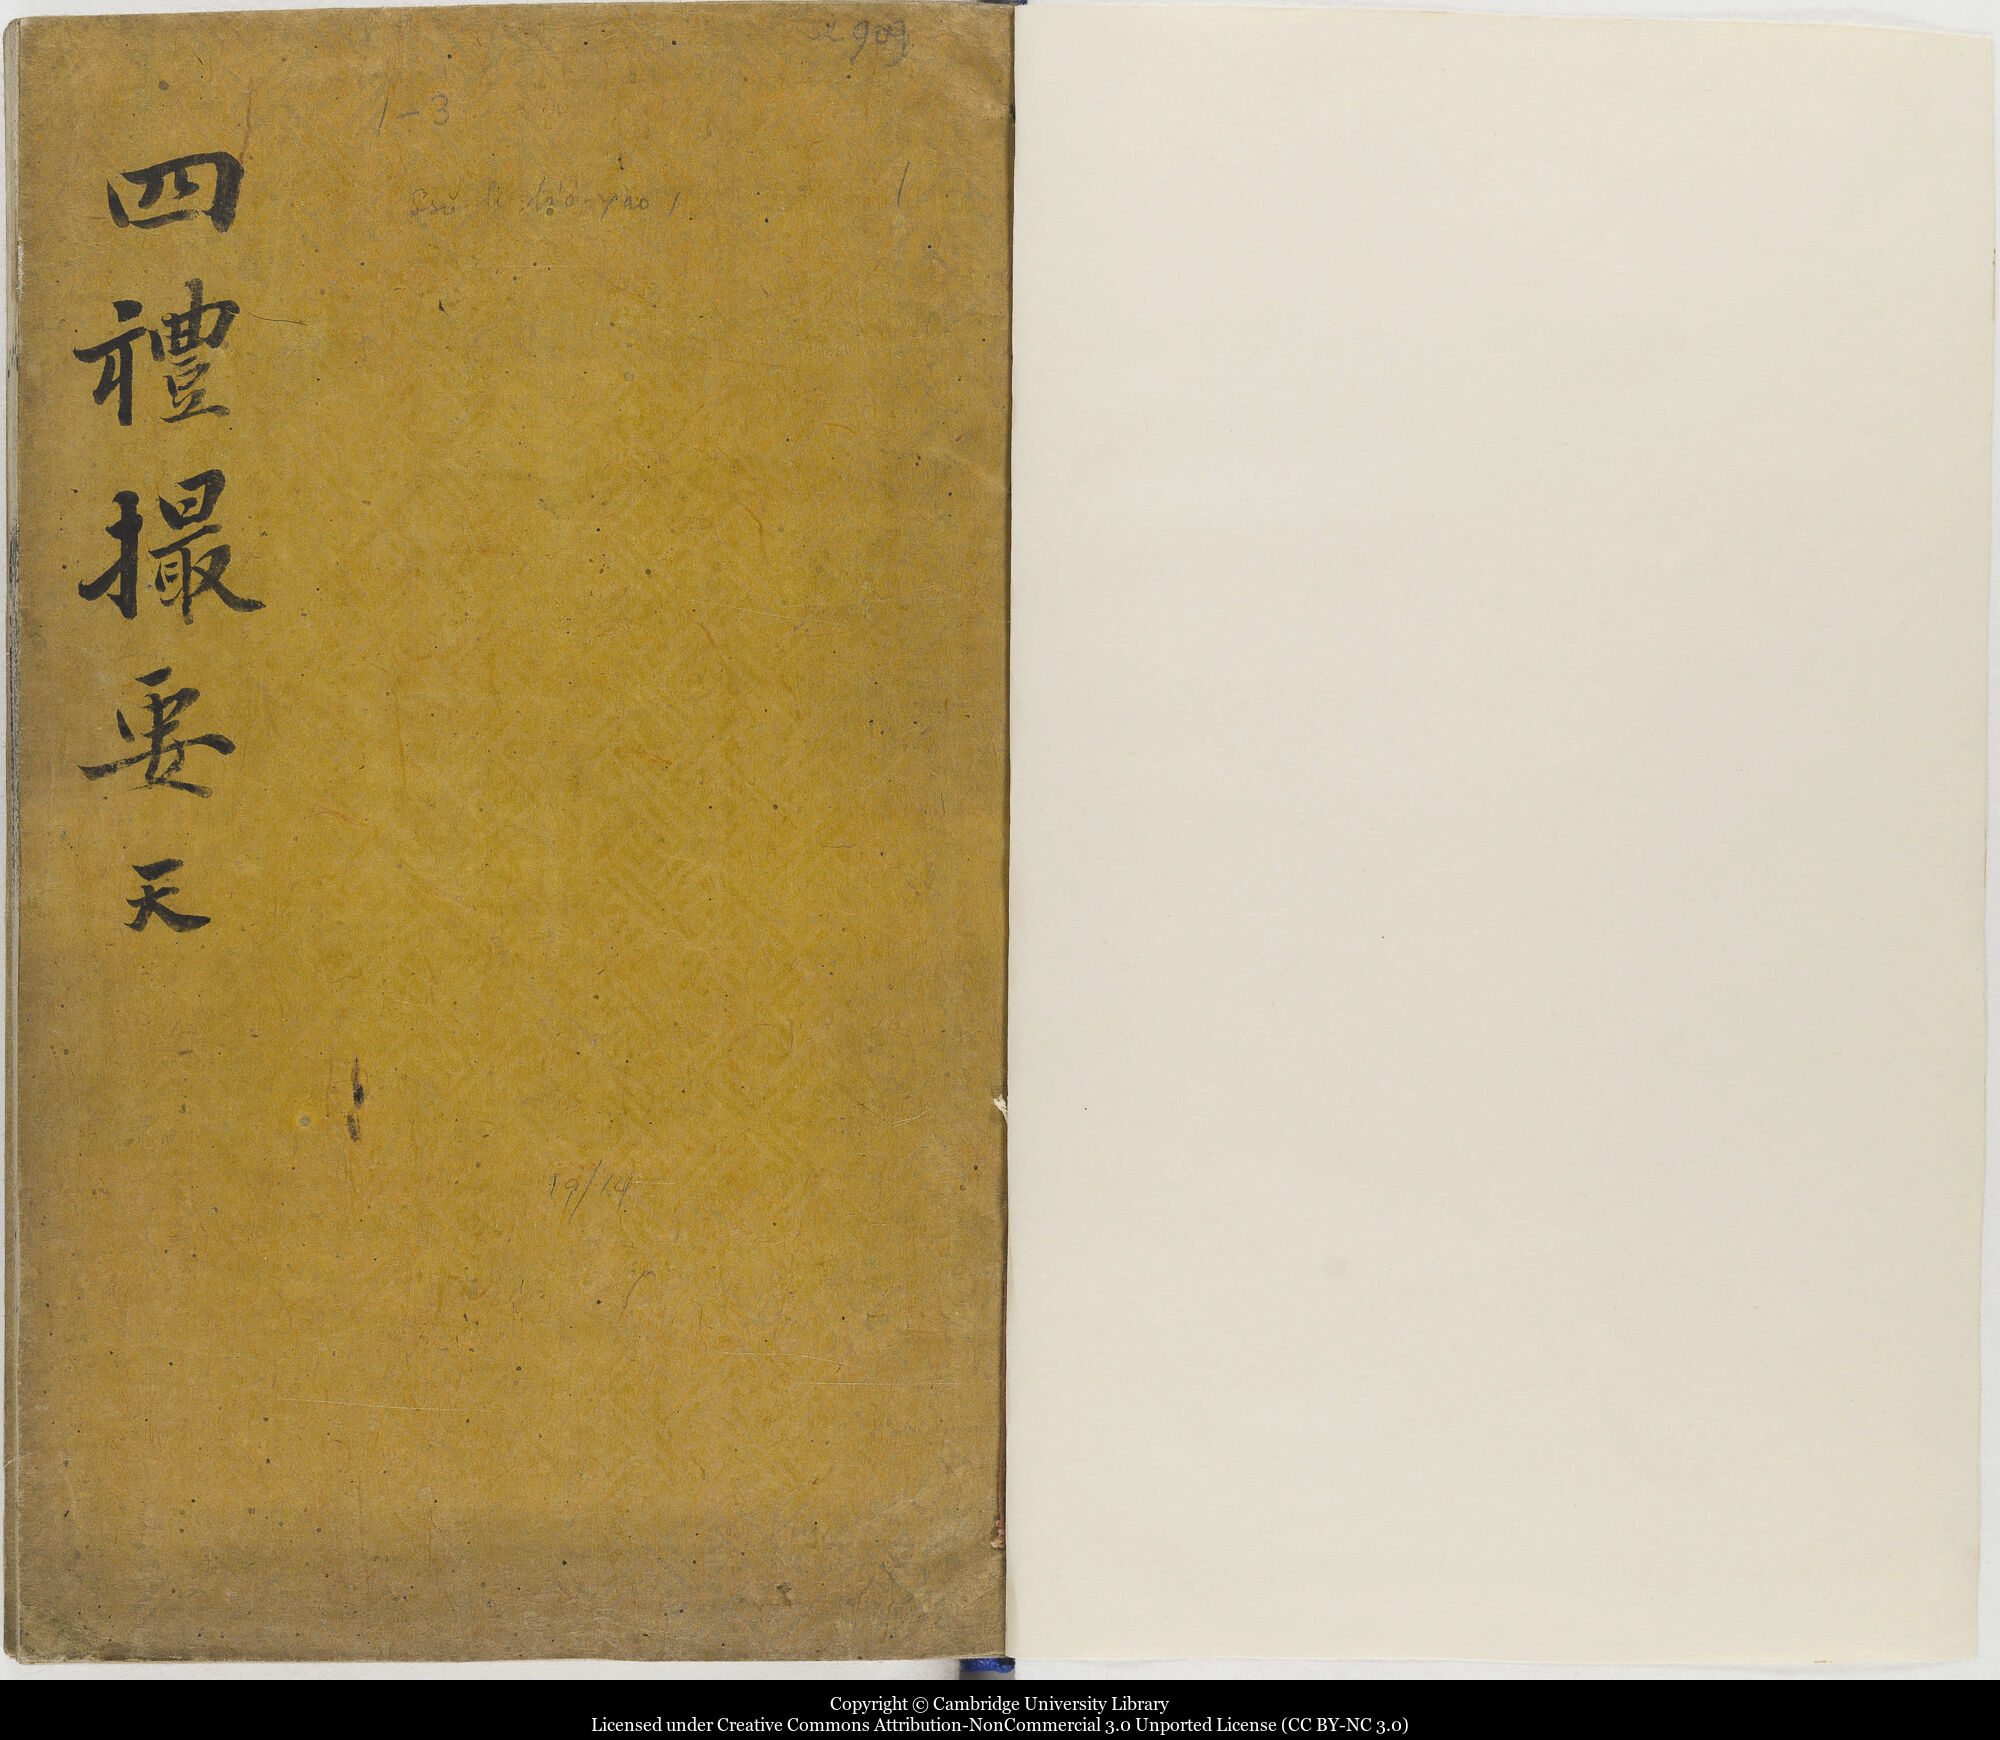 909
1-3
1
四禮撮要 天
19/14
Copyright © Cambridge University Library
Licensed under Creative Commons Attribution-NonCommercial 3.0 Unported License (CC BY-NC 3.0)